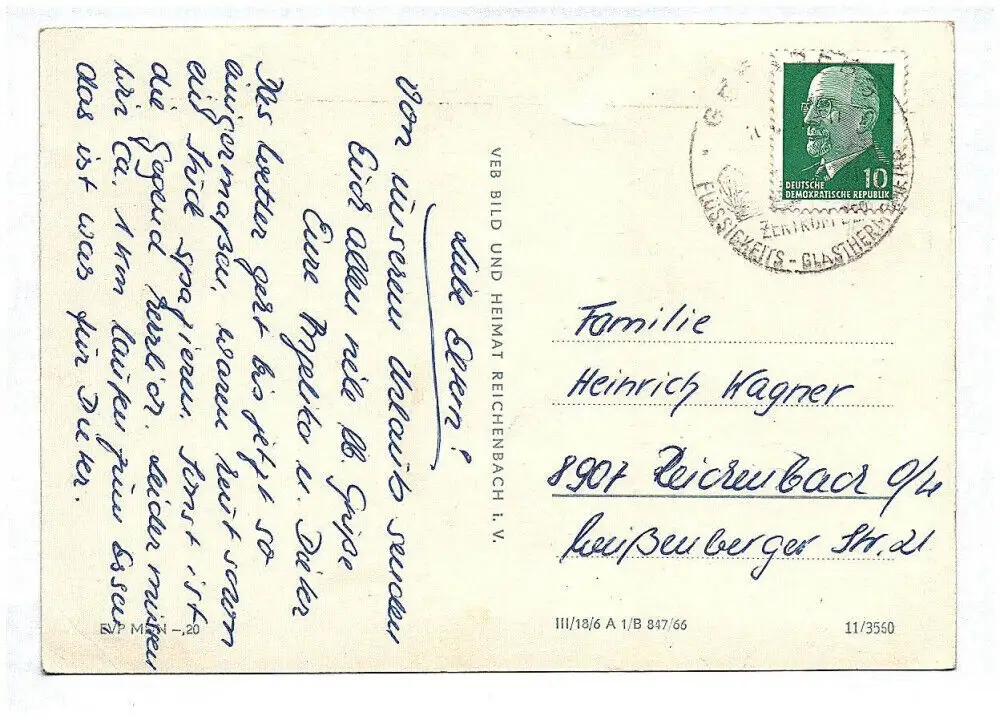 Liebe Eltern!
Von unserem Urlaub senden
Euch allen viele lb. Grüße
Eure Angelika u. Dieter
Das Wetter geht bis jetzt so
einigermaßen, waren heut schon
ein Stück spazieren. Sonst ist
die Gegend herrlich. Leider müssen
wir ca. 1 km laufen zum Essen
das ist was für Dieter.
VEB BILD UND HEIMAT REICHENBACH i. V.
DEUTSCHE
DEMOKRATISCHE REPUBLIK
10
ZENTRUM DER
FLÜSSIGKEITS-GLASTHERMOMETER
Familie
Heinrich Wagner
8907 Reichenbach O/L
Weißenberger Str. 21
EVP MDN -,20
III/18/6 A 1/B 847/66
11/3560